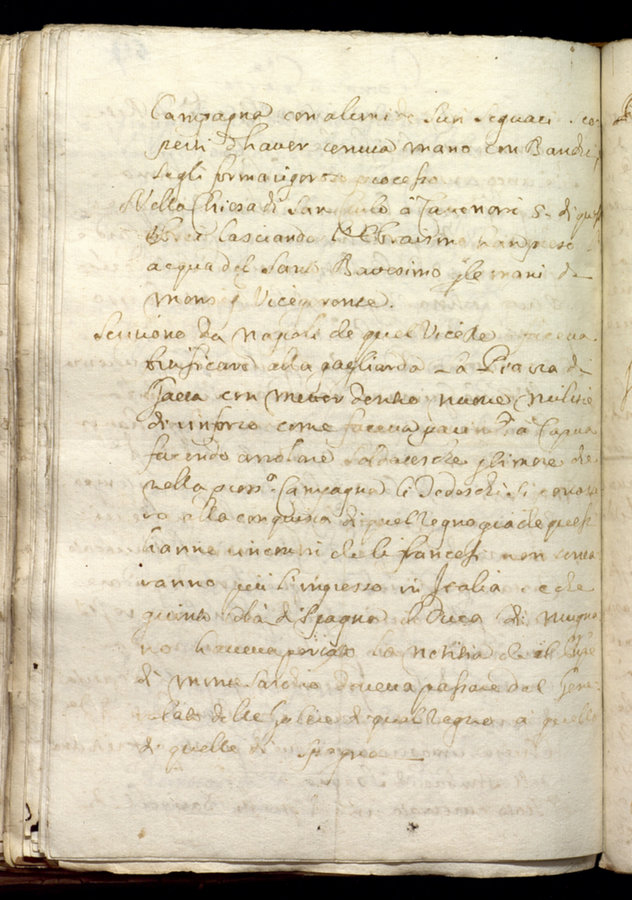 Campagna con alcuni de suoi seguaci. so
spetti d'haver tenuta mano con Banditi
segli forma rigoroso processo
Nella Chiesa di San Paolo
lasciando l'Ebraismo han preso
acqua del Santo Battesimo p le mani di
mons.r Vicegerente.
Scrivono da Napoli che quel Vicerè faceva
fortificare alla gagliarda La Piazza di
Gaeta con metter dentro nuove militie
di rinforzo come faceva a Capua
facendo arrolare soldatesche p timore che
nella pross.a Campagna li Tedeschi si
alla conquista di quel Regno già che questi
hanno che li francesi non
ranno più l'ingresso in Italia. e che
giunto colà di Spagna il Duca di
no haveva portato la notitia che il
di monte Sardio doveva passare dal Gene
ralato delle Galere di quel Regno a quello
di quelle di Spagna